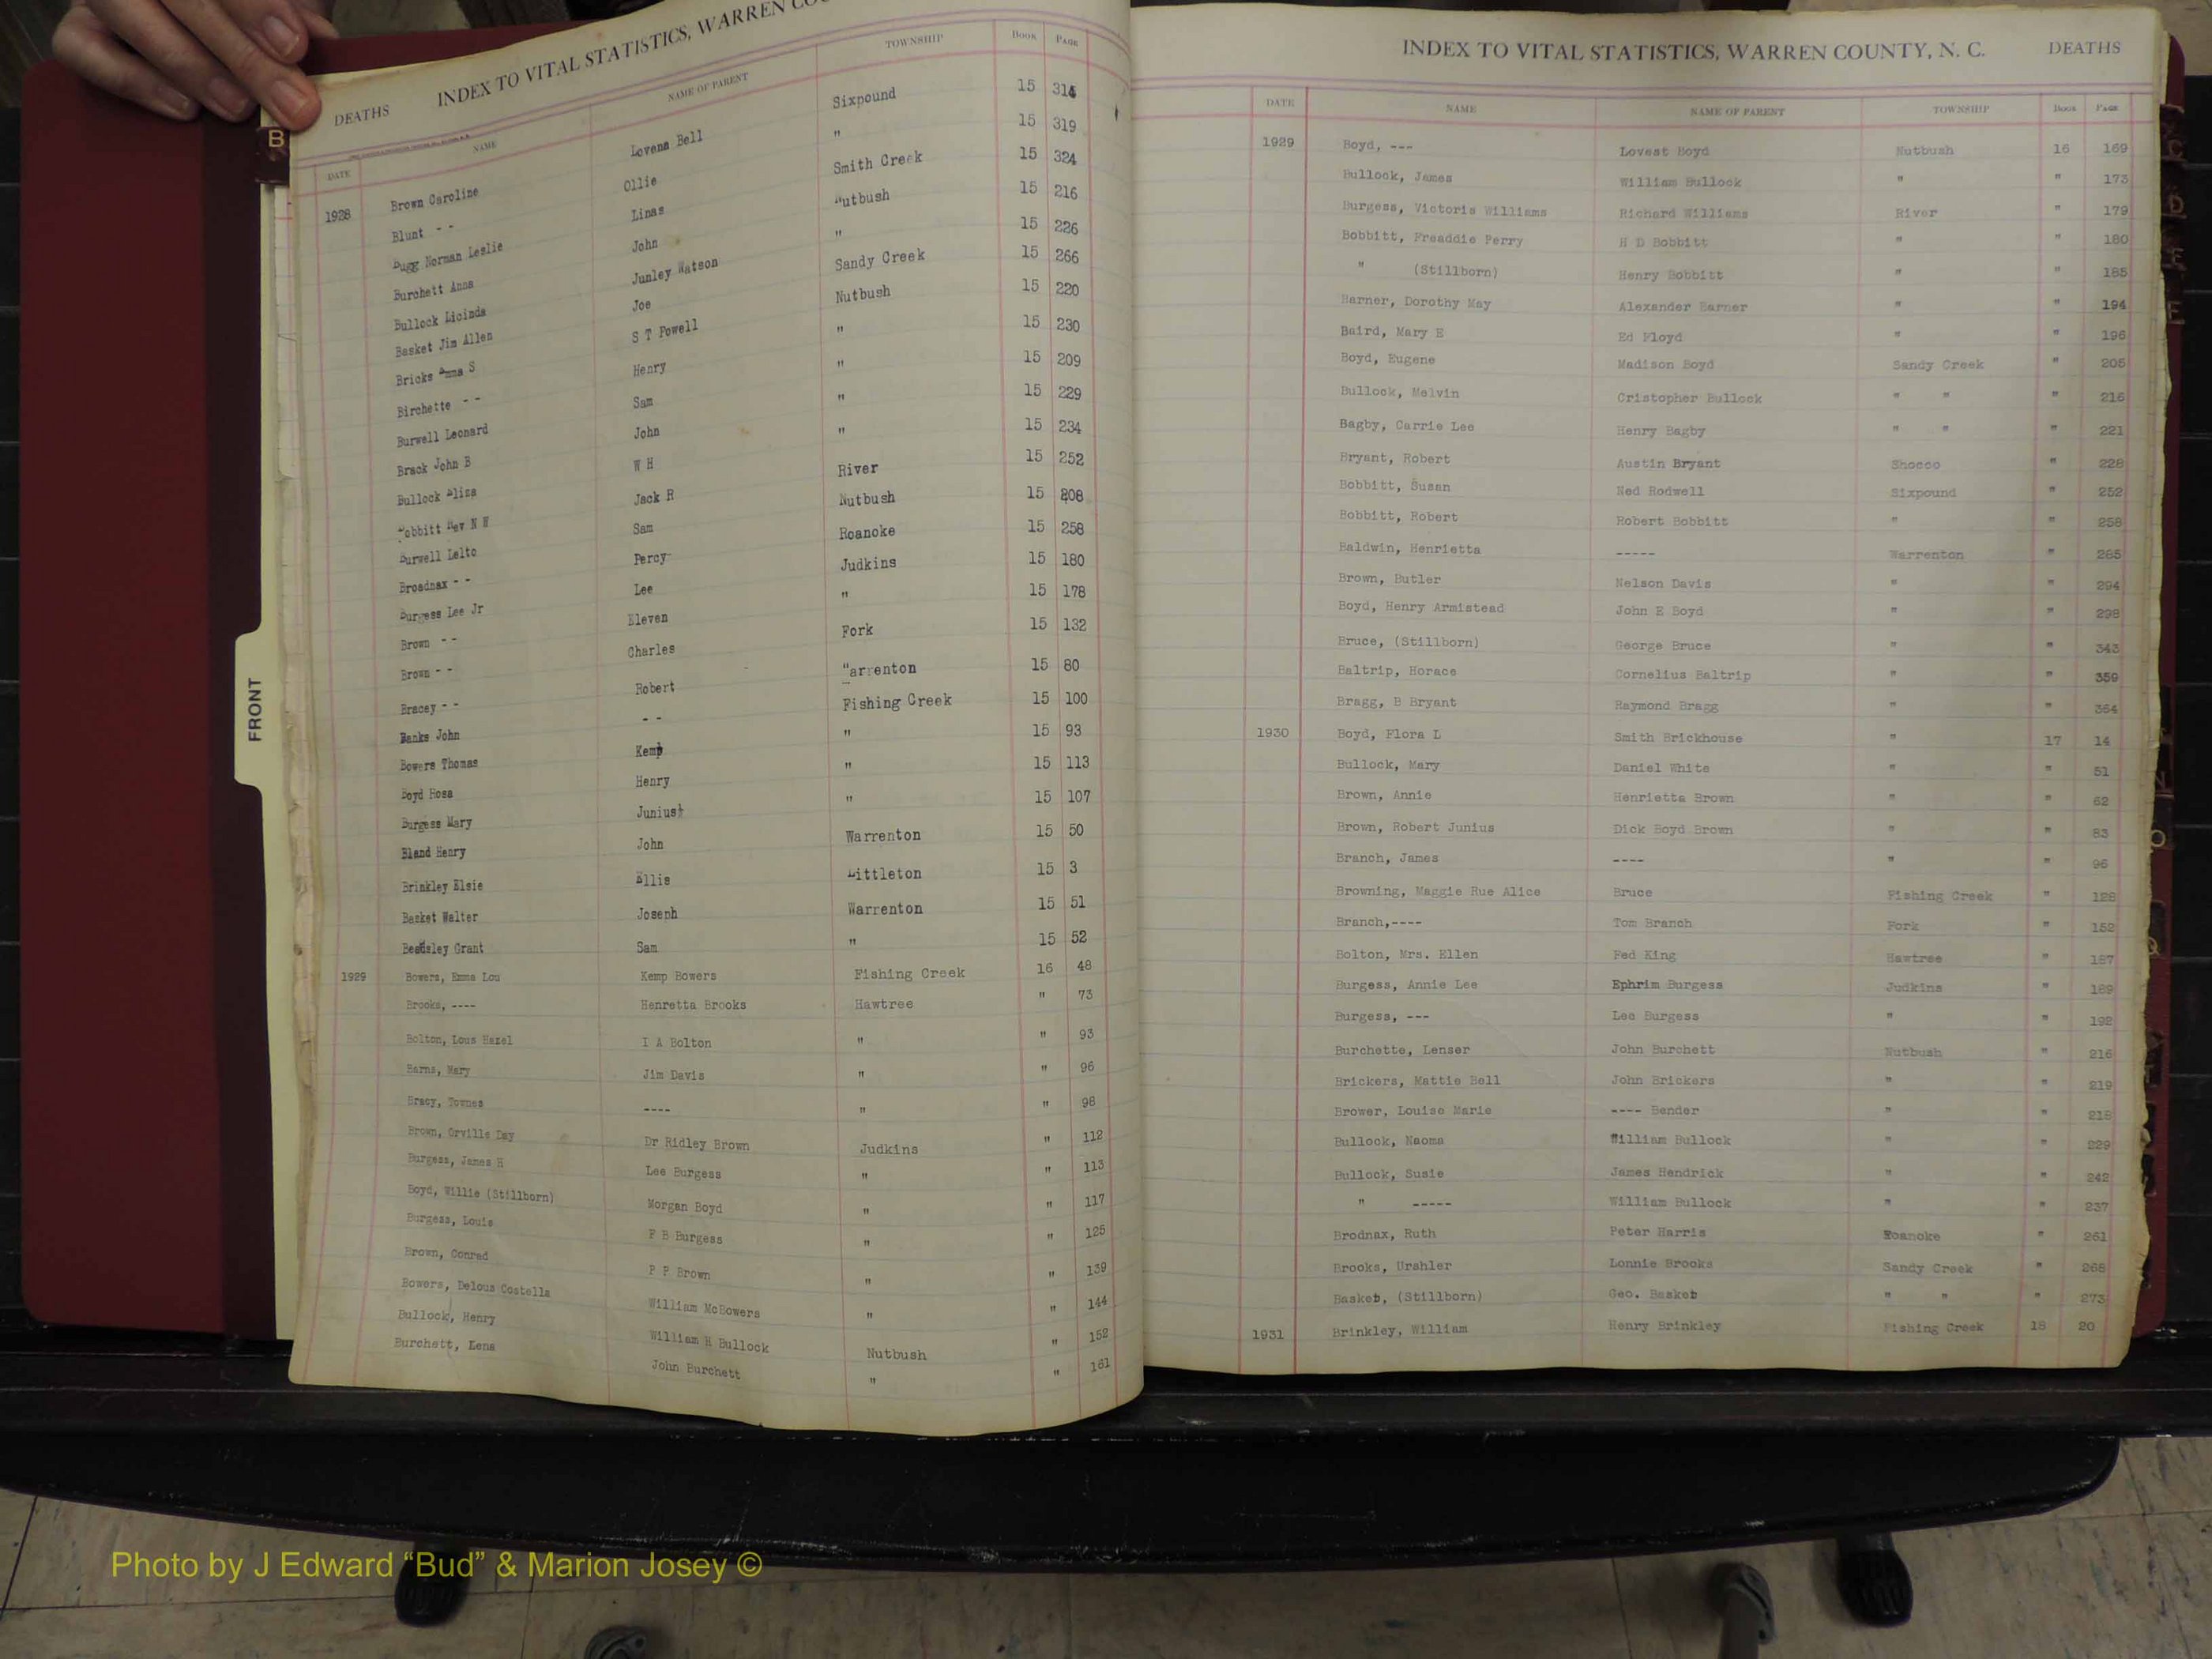 DEATHS INDEX TO VITAL STATISTICS, WARREN COU
DATE NAME NAME OF PARENT TOWNSHIP BOOK PAGE
1928 Brown Caroline Lovena Bell Sixpound 15 314
Blunt - - Ollie " 15 319
Bugg Norman Leslie Linas Smith Creek 15 324
Burchett Anna John Nutbush 15 216
Bullock Licinda Junley Watson " 15 226
Basket Jim Allen Joe Sandy Creek 15 266
Bricks Anna S S T Powell Nutbush 15 220
Birchette - - Henry " 15 230
Burwell Leonard Sam " 15 209
Brack John B John " 15 229
Bullock Eliza W H " 15 234
Bobbitt Rev N W Jack R River 15 252
Burwell Lelto Sam Nutbush 15 208
Broadnax - - Percy Roanoke 15 258
Burgess Lee Jr Lee Judkins 15 180
Brown - - Eleven " 15 178
Brown - - Charles Fork 15 132
Bracey - - Robert Warrenton 15 80
Banks John - - Fishing Creek 15 100
Bowers Thomas Kemp " 15 93
Boyd Rosa Henry " 15 113
Burgess Mary Junius " 15 107
Bland Henry John Warrenton 15 50
Brinkley Elsie Ellis Littleton 15 3
Basket Walter Joseph Warrenton 15 51
Beadsley Grant Sam " 15 52
1929 Bowers, Emma Lou Kemp Bowers Fishing Creek 16 48
Brooks, ---- Henretta Brooks Hawtree " 73
Bolton, Lous Hazel I A Bolton " " 93
Barns, Mary Jim Davis " " 96
Bracy, Townes ---- " " 98
Brown, Orville Day Dr Ridley Brown Judkins " 112
Burgess, James H Lee Burgess " " 113
Boyd, Willie (Stillborn) Morgan Boyd " " 117
Burgess, Louis F B Burgess " " 125
Brown, Conrad P P Brown " " 139
Bowers, Delous Costella William McBowers " " 144
Bullock, Henry William H Bullock Nutbush " 152
Burchett, Lena John Burchett " " 161
B
FRONT
INDEX TO VITAL STATISTICS, WARREN COUNTY, N. C. DEATHS
DATE NAME NAME OF PARENT TOWNSHIP BOOK PAGE
1929 Boyd, --- Lovest Boyd Nutbush 16 169
Bullock, James William Bullock " " 173
Burgess, Victoria Williams Richard Williams River " 179
Bobbitt, Freaddie Perry H D Bobbitt " " 180
" (Stillborn) Henry Bobbitt " " 185
Harner, Dorothy May Alexander Harner " " 194
Baird, Mary E Ed Floyd " " 196
Boyd, Eugene Madison Boyd Sandy Creek " 205
Bullock, Melvin Cristopher Bullock " " " 216
Bagby, Carrie Lee Henry Bagby " " " 221
Bryant, Robert Austin Bryant Shocco " 228
Bobbitt, Susan Ned Rodwell Sixpound " 252
Bobbitt, Robert Robert Bobbitt " " 258
Baldwin, Henrietta ----- Warrenton " 285
Brown, Butler Nelson Davis " " 294
Boyd, Henry Armistead John E Boyd " " 298
Bruce, (Stillborn) George Bruce " " 343
Baltrip, Horace Cornelius Baltrip " " 359
Bragg, B Bryant Raymond Bragg " " 364
1930 Boyd, Flora L Smith Brickhouse " 17 14
Bullock, Mary Daniel White " " 51
Brown, Annie Henrietta Brown " " 62
Brown, Robert Junius Dick Boyd Brown " " 83
Branch, James ---- " " 96
Browning, Maggie Rue Alice Bruce Fishing Creek " 128
Branch,---- Tom Branch Fork " 152
Bolton, Mrs. Ellen Fed King Hawtree " 167
Burgess, Annie Lee Ephrim Burgess Judkins " 189
Burgess, --- Lee Burgess " " 192
Burchette, Lenser John Burchett Nutbush " 216
Brickers, Mattie Bell John Brickers " " 219
Brower, Louise Marie ---- Bender " " 218
Bullock, Naoma William Bullock " " 229
Bullock, Susie James Hendrick " " 242
" ----- William Bullock " " 237
Brodnax, Ruth Peter Harris Roanoke " 261
Brooks, Urshler Lonnie Brooks Sandy Creek " 268
Basket, (Stillborn) Geo. Basket " " " 273
1931 Brinkley, William Henry Brinkley Fishing Creek 18 20
Photo by J Edward “Bud” & Marion Josey ©